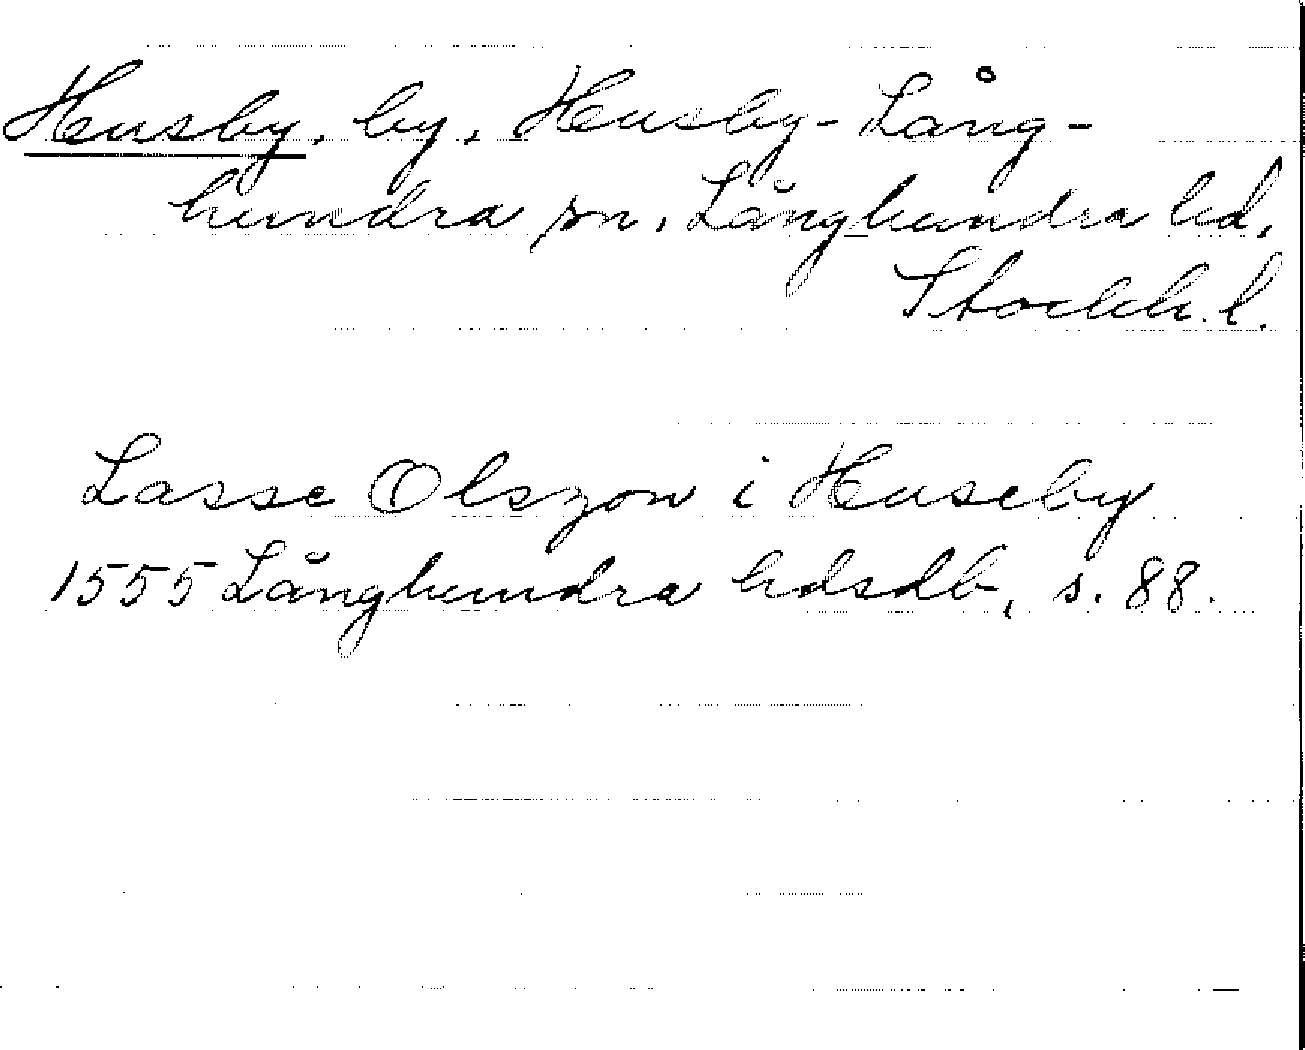 Husby, by, Husby-Lång-
hundra sn, Långhundra hd,
Stockh. l.
Lasse Olszon i Huseby
1555 Långhundra hdsdb, s. 88.